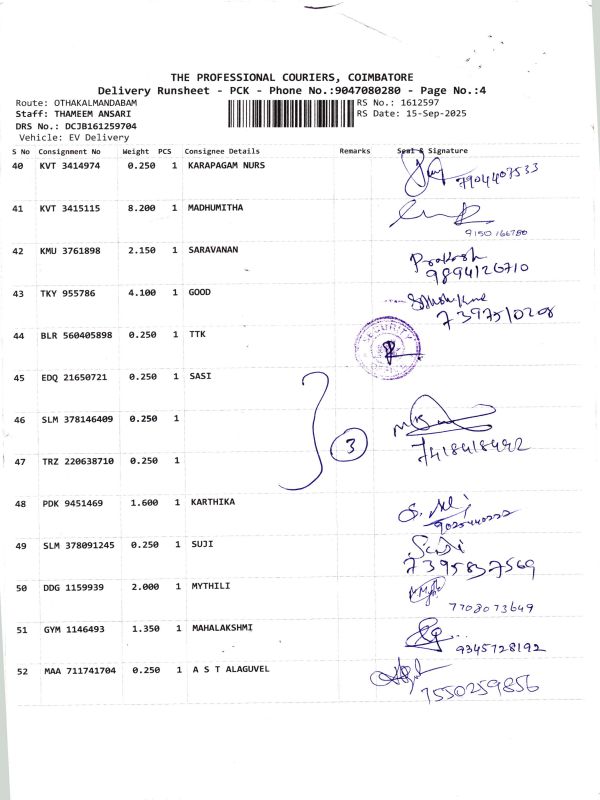 THE PROFESSIONAL COURIERS, COIMBATORE
Delivery Runsheet - PCK - Phone No.:9047080280 - Page No.:4
Route: OTHAKALMANDABAM RS No.: 1612597
Staff: THAMEEM ANSARI RS Date: 15-Sep-2025
DRS No.: DCJB161259704
Vehicle: EV Delivery
S No Consignment No Weight PCS Consignee Details Remarks Seal & Signature
40 KVT 3414974 0.250 1 KARAPAGAM NURS
7904407533
41 KVT 3415115 8.200 1 MADHUMITHA
9150166780
42 KMU 3761898 2.150 1 SARAVANAN Prakash
9894126710
43 TKY 955786 4.100 1 GOOD
44 BLR 560405898 0.250 1 TTK SECURITY
45 EDQ 21650721 0.250 1 SASI
46 SLM 378146409 0.250 1
3 7418418492
47 TRZ 220638710 0.250 1
48 PDK 9451469 1.600 1 KARTHIKA
49 SLM 378091245 0.250 1 SUJI
7395837569
50 DDG 1159939 2.000 1 MYTHILI
7708073649
51 GYM 1146493 1.350 1 MAHALAKSHMI
9345728192
52 MAA 711741704 0.250 1 A S T ALAGUVEL
7550259856